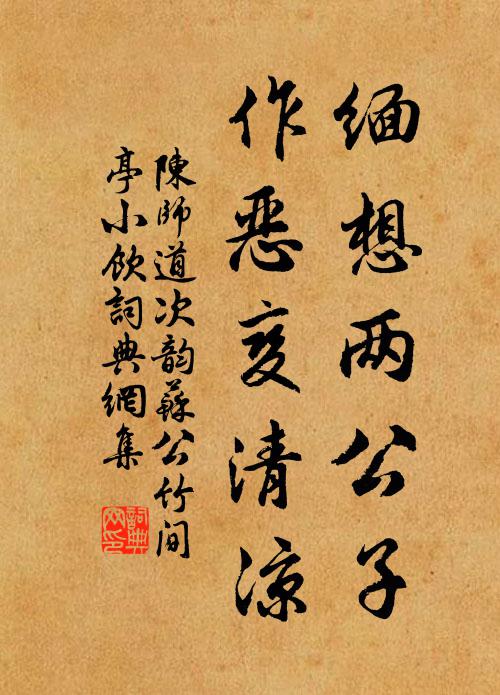 缅想两公子
作恶变清凉
陳師道次韵蘇公竹间
亭小飲詞典網集
詞典
网印